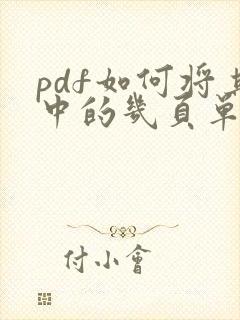 pdf如何将其
中的几页单
付小會